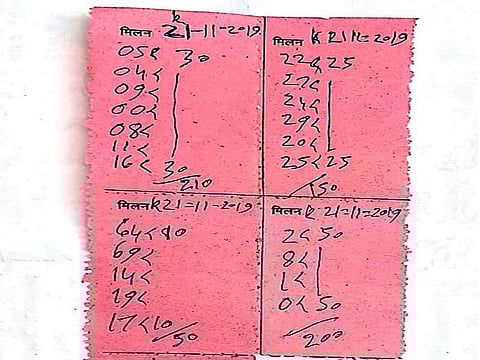 मिलन K 21-11-2019
05< 30
04<
09<
00<
08<
11<
16< 30
210
मिलन K 21 11=2019
22< 25
27<
24<
29<
20<
25< 25
150
मिलन K 21=11-2019
64< 10
69<
14<
19<
17< 10
50
मिलन K 21=11=2019
2< 50
8<
1<
0< 50
200